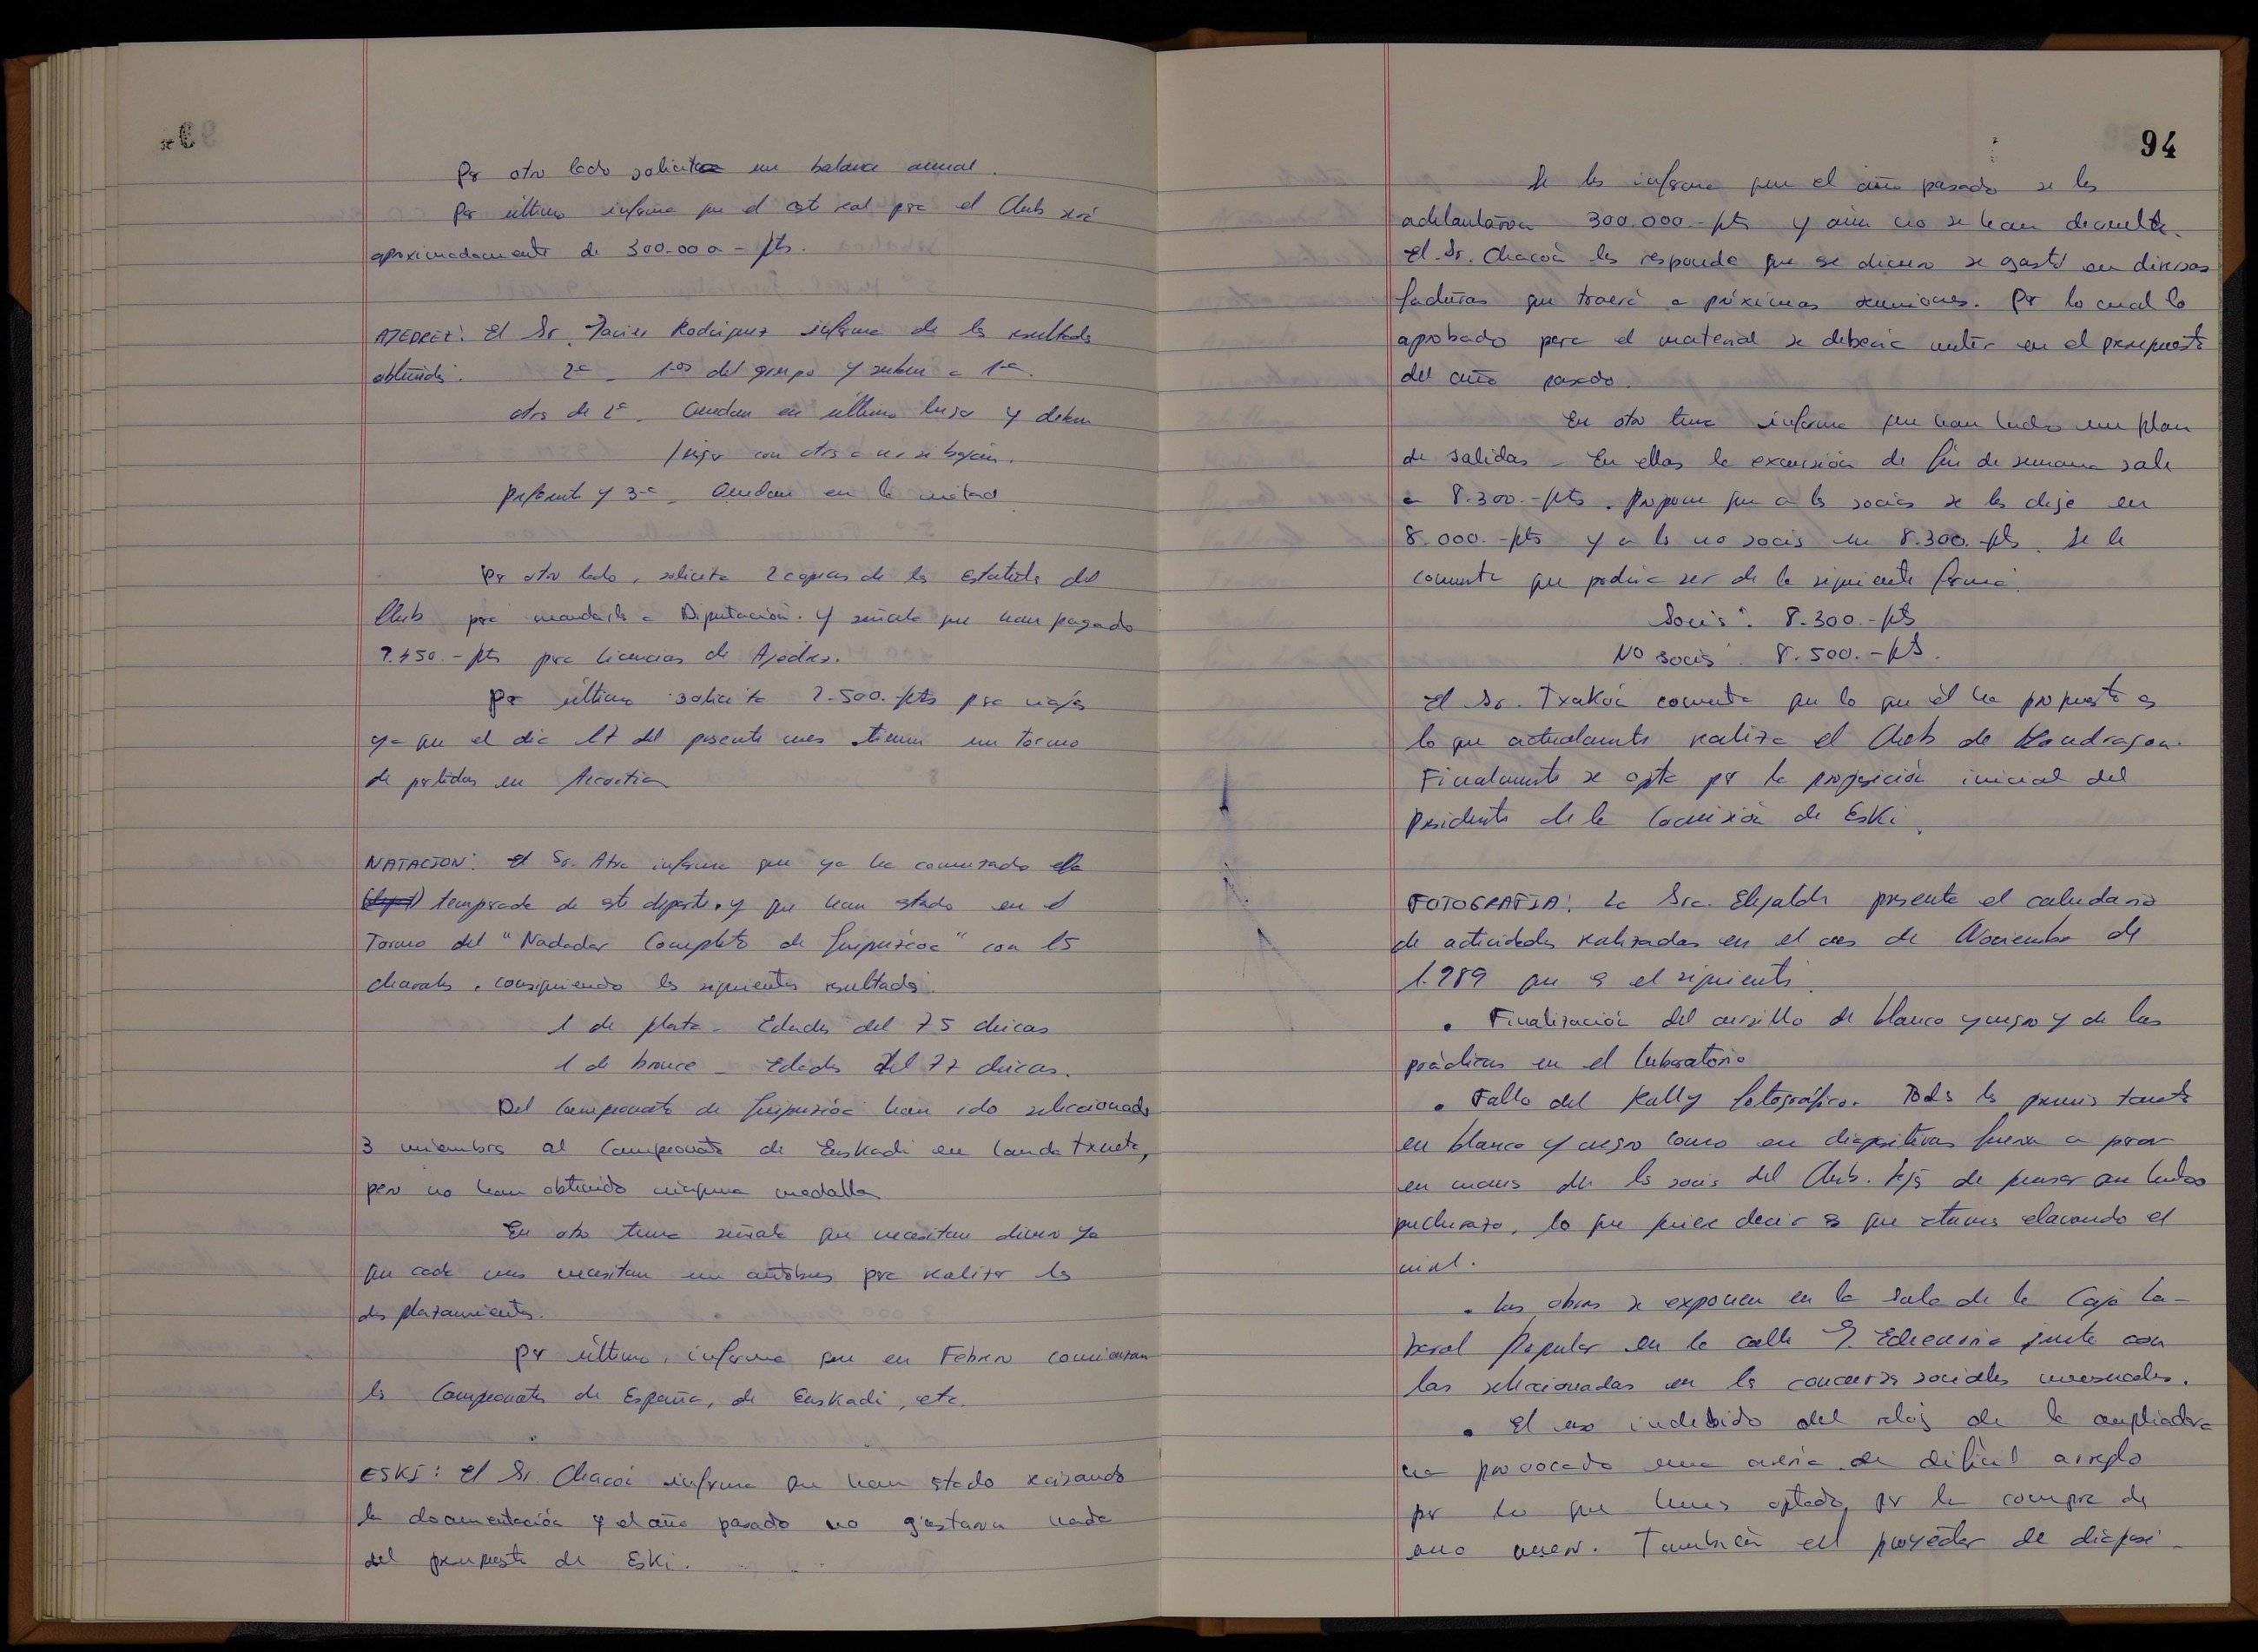 Por otro lado solicita un balance anual.
Por último informa que el cost real para el Club será
aproximadamente de 300.000 - pts.
AJEDREZ: El Sr. Javier Rodriguez informa de los resultados
obtenidos: 2ª - 1os del grupo y suben a 1ª.
otros de 2ª - Quedan en último lugar y deben
jugar con otros a ver si bajan.
Preferente y 3ª - Quedan en la mitad
Por otro lado, solicita 2 copias de los Estatutos del
Club para mandarlos a Diputación. Y señala que han pagado
7.450 - pts para licencias de Ajedrez.
Por último solicita 2.500.-pts para viajes
ya que el dia 17 del presente mes tienen un torneo
de partidas en
NATACION: El Sr. Atxa informa que ya ha comenzado la
temporada de este deporte y que han estado en el
Torneo del "Nadador Completo de Guipúzcoa" con 15
chavales, consiguiendo los siguientes resultados:
1 de plata - Edades del 75 chicas
1 de bronce - Edades del 77 chicas.
Del Campeonato de Guipuzcoa han ido seleccionados
3 miembros al Campeonato de Euskadi en Landa txueta,
pero no han obtenido ninguna medalla
En otro tema señala que necesitan dinero ya
que cada mes necesitan un autobus para realizar los
desplazamientos.
Por último, informa que en Febrero comienzan
los Campeonatos de España, de Euskadi, etc.
ESKI: El Sr. Chacón informa que han estado revisando
la documentación y el año pasado no gastaron nada
del presupuesto de Eski.
94
Se les informa que el año pasado se les
adelantaron 300.000.-pts y aún no se han devuelto.
El Sr. Chacón les responde que ese dinero se gastó en diversas
facturas que traerá a próximas reuniones. Por lo cual lo
aprobado para el material se debería meter en el presupuesto
del año pasado.
En otro tema informa que han hecho un plan
de salidas - En ellas la excursión de fin de semana sale
a 8.300.-pts. Propone que a los socios se les deje en
8.000.-pts y a los no socios en 8.300.-pts. Se le
comenta que podría ser de la siguiente forma:
Socios: 8.300.-pts
No socios: 8.500.-pts.
El Sr. Txakón comenta que lo que él ha propuesto es
lo que actualmente realiza el Club de Mondragon.
Finalmente se opta por la proposición inicial del
Presidente de la Comisión de Eski.
FOTOGRAFIA: La Sra. Elejalde presenta el calendario
de actividades realizadas en el mes de Noviembre de
1.989 que es el siguiente:
• Finalización del cursillo de blanco y negro y de las
prácticas en el laboratorio
• Fallo del Rally fotográfico. Todos los premios tanto
en blanco y negro como en diapositivas fueron a parar
en manos de los socios del Club. Lejos de pensar que hubo
pucherazo, lo que quiere decir es que estamos elevando el
nivel.
• Las obras se exponen en la sala de la Caja La-
boral Popular en la calle J. Echeverria junto con
las seleccionadas en los concursos sociales mensuales.
• El uso indebido del reloj de la ampliadora
ha provocado una avería de dificil arreglo
por lo que hemos optado por la compra de
uno nuevo. También el proyector de diaposi-